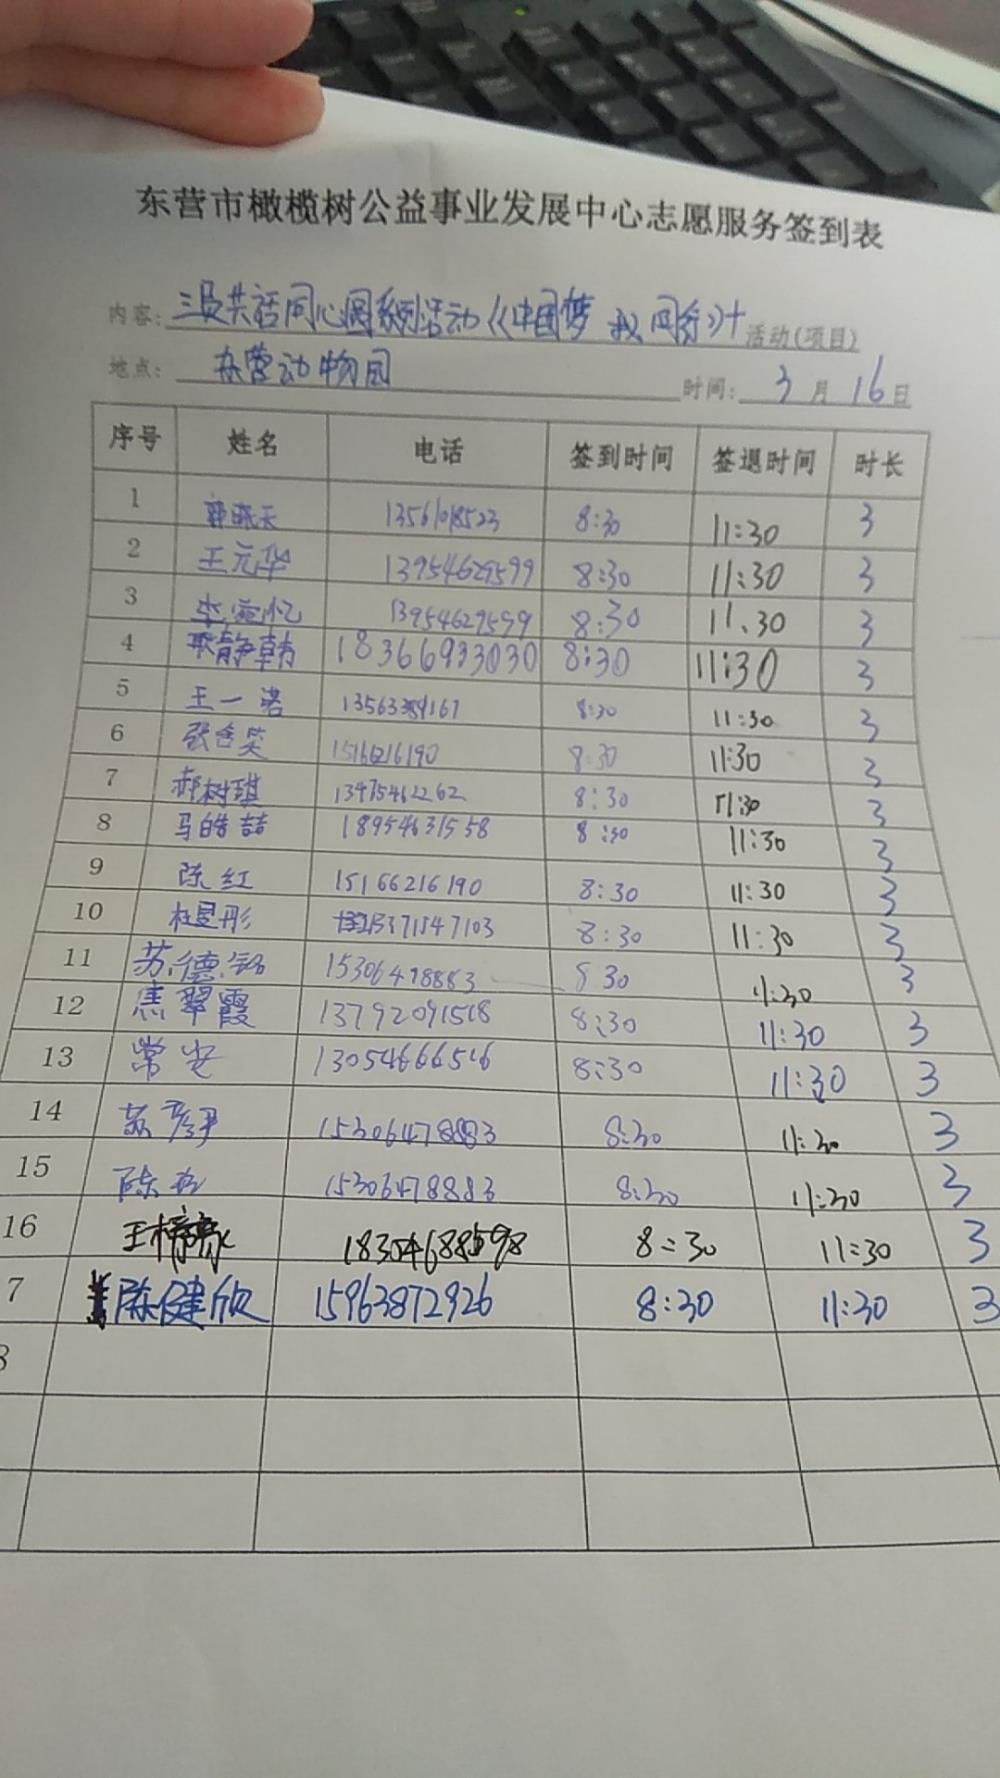 东营市橄榄树公益事业发展中心志愿服务签到表
内容: 三员共话同心圆系列活动《中国梦 我 同 活动(项目)
地点: 东营动物园 时间: 3 月 16 日
序号 姓名 电话 签到时间 签退时间 时长
1 郭晓天 8:30 11:30 3
2 王元华 13954629599 8:30 11:30 3
3 李 忆 13954629599 8:30 11.30 3
4 静韩 18366933030 8:30 11:30 3
5 王一诺 8:30 11:30 3
6 张含笑 8:30 11:30 3
7 郝树琪 13475462262 8:30 11:30 3
8 马皓喆 18954631558 8:30 11:30 3
9 陈红 15166216190 8:30 11:30 3
10 杜昱彤 15371547103 8:30 11:30 3
11 苏德铭 15306478883 8 30 11:30 3
12 焦翠霞 13792091518 8:30 11:30 3
13 常安 13054666516 8:30 11:30 3
14 苏彦尹 15306478883 8:30 11:30 3
15 陈 15306478883 8:30 11:30 3
16 王梓豪 8:30 11:30 3
7 陈健欣 15963872926 8:30 11:30 3
8